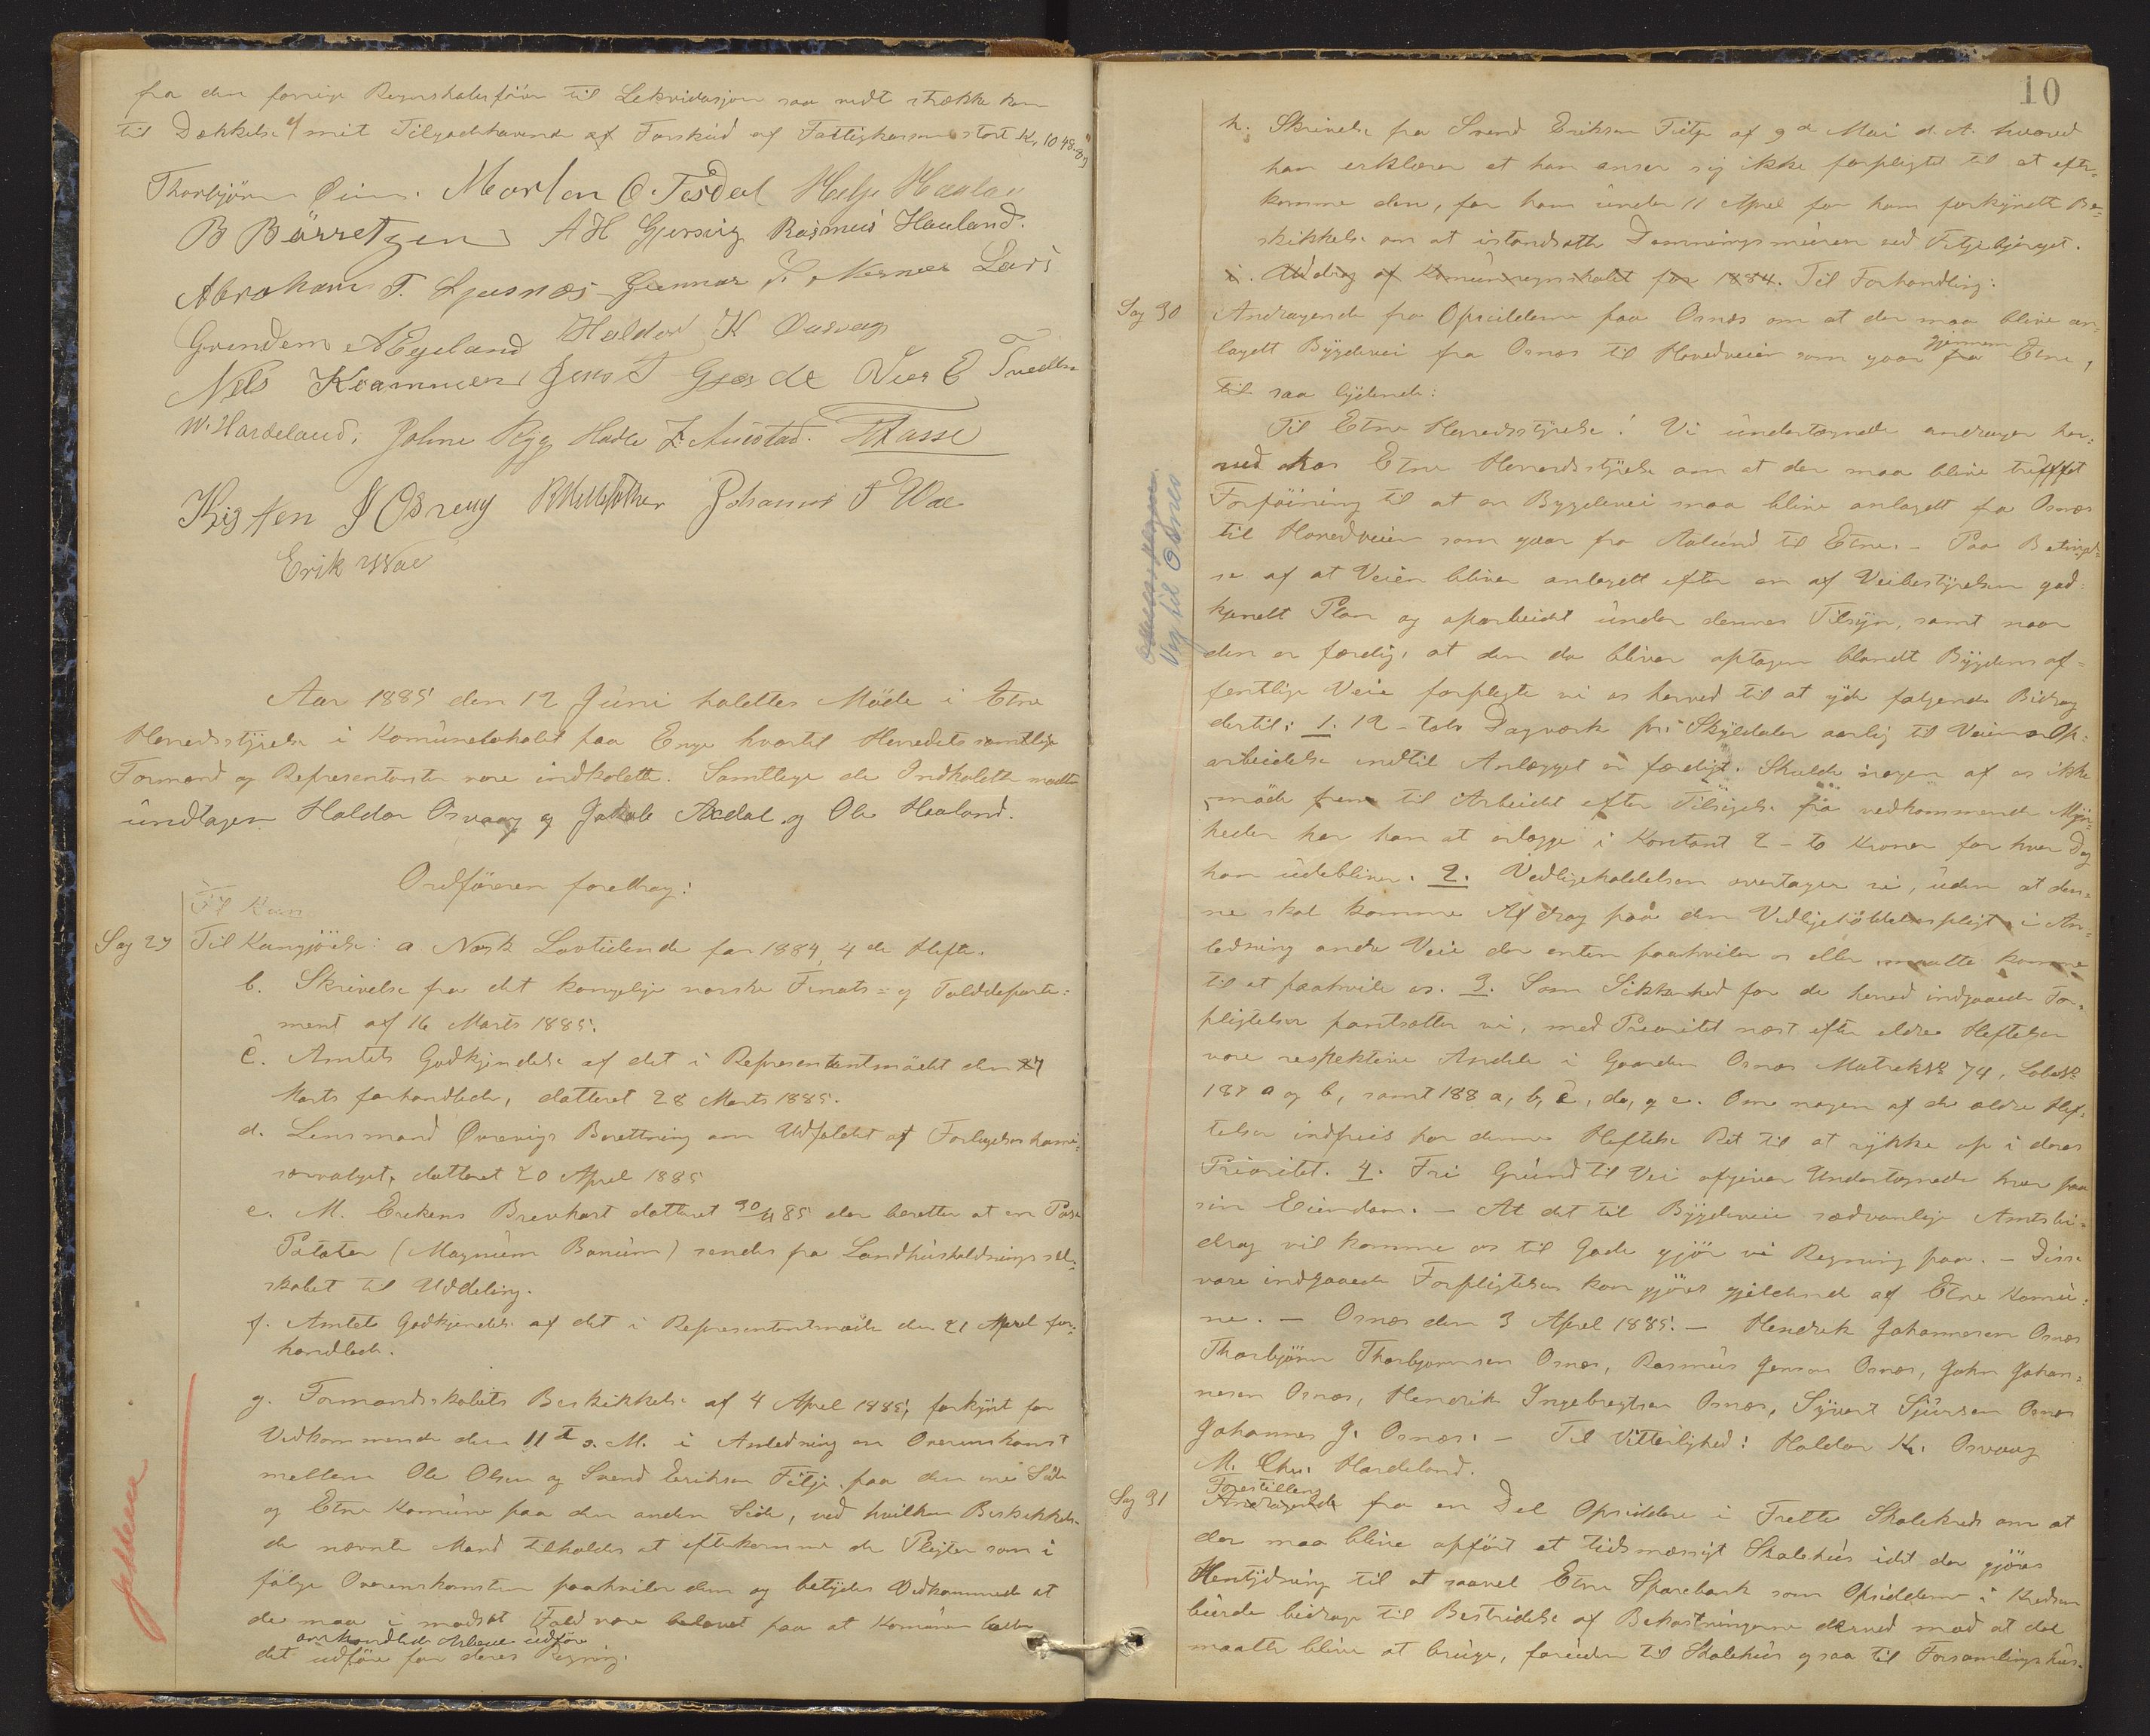 fra den forrige Regnskabsfører til Lekvidasjon saa vidt strække kan
til Dækkelse af mit Tilgodehavende af Forskud af Fattigkassen stort Kr. 1048.89
Thorbjørn Øien. Morten O. Tesdal Helge Hauland
B Børretzen AH Gjersvig Rasmus Hauland.
Abraham T. Ljusnæs Gunnar Nernæs Lars
Grindem Egeland Haldor K Osvaag
Nels Krammer Jens T Gjerde Peer E Tvedten
W. Hardeland. Johne Ryg Hadle
Kisten J Osnæs Johannes T Wae
Erik Wae
Aar 1885 den 12 Juni holdtes Møde i Etne
Herredsstyrelse i Komunelokalet paa Enge hvortil Herredets samtlige
Formænd og Representanter vare indkaldte. Samtlige de Indkaldte mødte
undtagen Haldor Osvaag og Jakob Axdal og Ole Hauland.
Ordføreren foredrog:
Til Kun
Sag 29 Til Kungjørelse: a Norsk Lovtidende for 1884, 4de Hefte.
b. Skrivelse fra det kongelige norske Finats- og Tolddeparte-
ment af 16 Marts 1885.
c. Amtets Godkjendelse af det i Representantmødet den 24
Marts forhandlede, datteret 28 Marts 1885.
d. Lensmand Qvævigs Berettning om Udfaldet af Forligelseskomi-
særvalget, datteret 20 April 1885
e. M. Erekens Brevkort datteret 30/4 85 der beretter at en Pose
Poteter (Magnum Bonum) sendes fra Landhusholdningssel-
skabet til Uddeling.
f. Amtets Godkjendelse af det i Representantmøde den 21 April for-
handlede.
g. Formandsskabets Beskikkelse af 4 April 1885, forkynt for
Vedkommende den 11te s. M. i Anledning en Overenskomst
mellem Ole Olsen og Svend Eriksen Fitje paa den ene Side
og Etne Komune paa den anden Side, ved hvilken Beskikkelse
de nævnte Mænd tilholdes at efterkomme de Pligter som i
følge Overenskomsten paahviler dem og betydes Vedkommende at
de maa i modsat Fald være belavet paa at Komunen lader
omhandlede Arbeide udføre
det udføre for deres Regning.
10
h. Skrivelse fra Svend Eriksen Fitje af 9de Mai d. A. hvorved
han erklærer at han anser sig ikke forpligtet til at efter-
komme den, for ham under 11 April for ham forkyndte Be-
skikkelse om at istandsætte Dæmningsmuren ved Fitjebjerget.
i. Uddrag af Komuneregnskabet for 1884. Til Forhandling:
Sag 30 Andragende fra Opsidderne paa Osnæs om at der maa blive an-
lagdt Bygdevei fra Osnæs til Hovedveien som gaar fra gjennem Etne,
til saa lydende:
Til Etne Herredsstyrelse! Vi undertegnede andrager her-
ved hos Etne Herredsstyrelse om at der maa blive trufffet
Forføining til at en Bygdevei maa blive anlagdt fra Osnæs
til Hovedveien som gaar fra Aalund til Etne. – Paa Betingel-
se af at Veien bliver anlagdt efter en af Veibestyrelsen god-
kjendt Plan og oparbeidet under dennes Tilsyn, samt naar
den er færdig, at den da bliver optagen blandt Bygdens of-
fentlige Veie forpligte vi os herved til at yde følgende Bidrag
dertil: 1. 12 – tolv Dagværk pr. Skylddaler aarlig til Veiens Op-
arbeidelse indtil Anlægget er færdigt. Skulde nogen af os ikke
møde frem til Arbeidet efter Tilsigelse fra vedkommende Myn-
heder har han at erlægge i Kontant 2 – to Kroner for hver Dag
han udebliver. 2. Vedligeholdelsen overtager vi, uden at den-
ne skal komme Afdrag paa den Vedligeholdelsespligt i An-
ledning andre Veie der enten paahviler os eller maatte komme
til at paahvile os. 3. Som Sikkerhed for de herved indgaaede For-
pligtelser pantsætter vi, med Prioritet næst efter ældre Heftelser
vore respektive Andele i Gaarden Osnæs Matrik№ 74, Løbe№
187 a og b, samt 188 a, b, c, da, og e. Om nogen af de ældre Hef-
telser indfries har denne Heftelse Ret til at rykke op i deres
Prioritet. 4. Fri Grund til Vei afgiver Undertegnede hver paa
sin Eiendom. – At det til Bygdeveie sædvanlige Amtsbi-
drag vil komme os til Gode gjør vi Regning paa. – Disse
vore indgaaede Forpligtelser kan gjøres gjeldende af Etne Komu-
ne. – Osnæs den 3 April 1885. – Hendrik Johannesen Osnæs
Thorbjørn Thorbjørnsen Osnæs, Rasmus Jensen Osnæs, John Johan-
nesen Osnæs, Hendrik Ingebregtsen Osnæs, Syvert Sjursen Osnæs
Johannes J. Osnæs. – Til Vitterlighed: Haldor K. Osvaag
M. Chr. Hardeland.
Sag 31 Andragende Forestilling fra en Del Opsiddere i Trette Skolekreds om at
der maa blive opført et tidsmæssigt Skolehus idet der gjøres
Hentydning til at saavel Etne Sparebank som Opsidderne i Kredsen
burde bidrage til Bestridelse af Bekostningerne derved mod at det
maatte blive at bruge, foruden til Skolehus ogsaa til Forsamlingshus.
Veg til Osnes